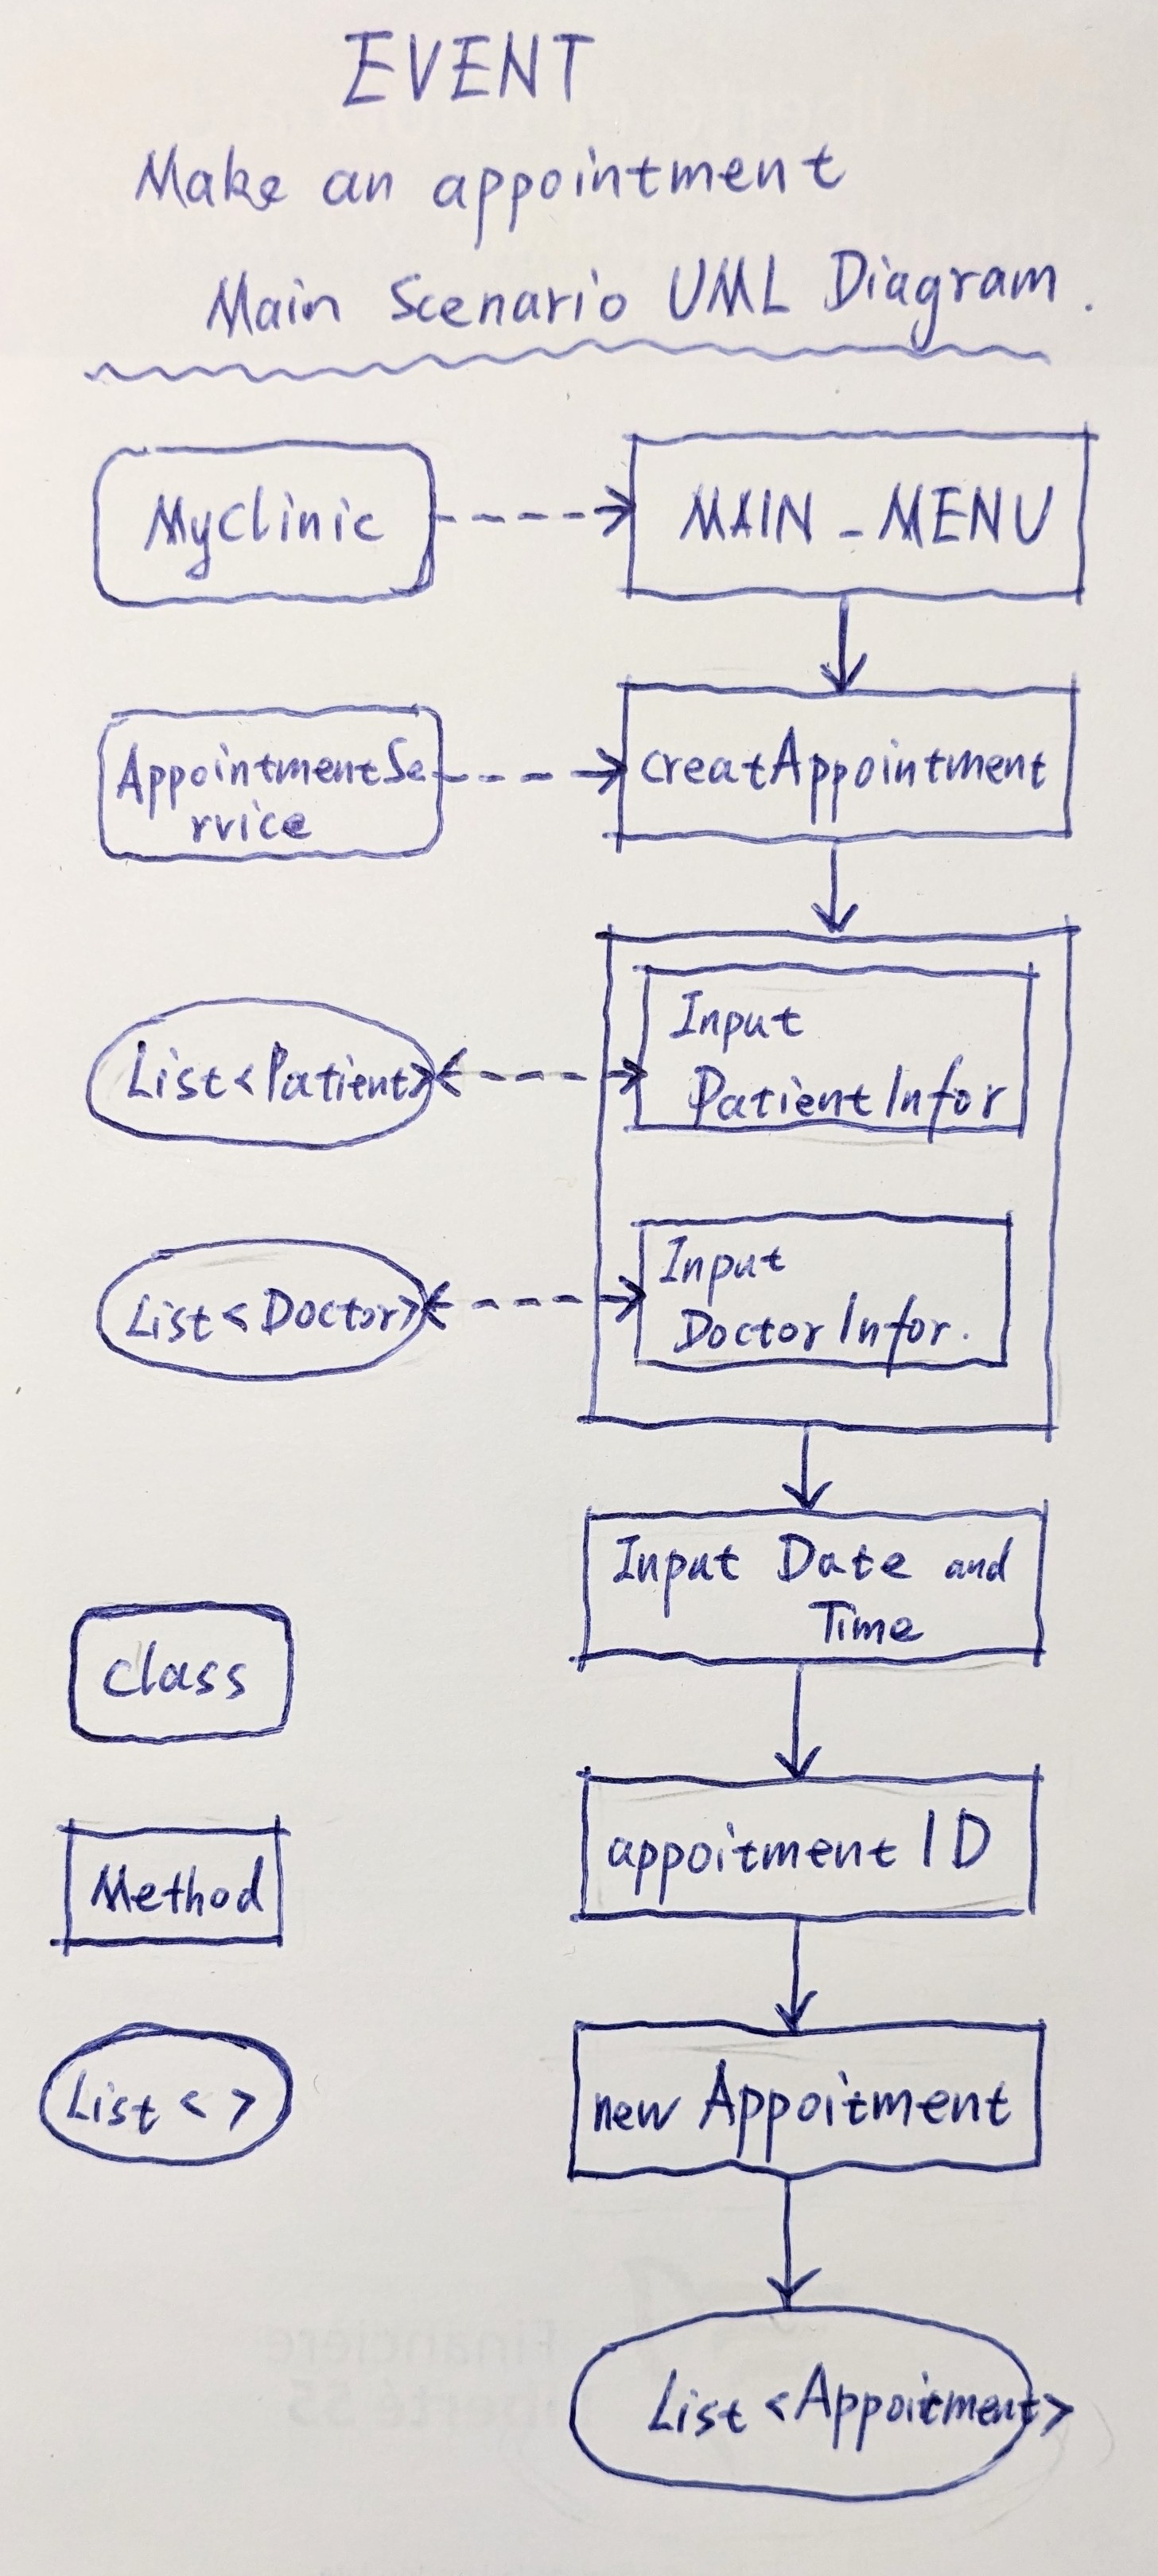 EVENT
Make an appointment
Main Scenario UML Diagram.
MyClinic
MAIN_MENU
AppointmentSe
rvice
creatAppointment
List<Patient>
Input
PatientInfor
List<Doctor>
Input
DoctorInfor.
Input Date and
Time
class
appoitment ID
Method
List < >
new Appoitment
List <Appoitment>